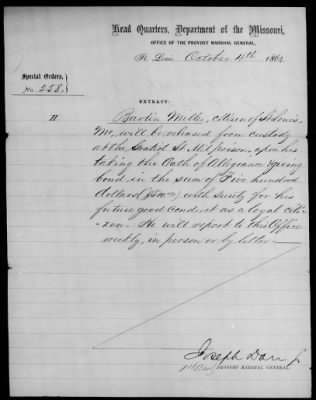 Head Quarters, Department of the Missouri,
OFFICE OF THE PROVOST MARSHAL GENERAL,
St. Louis, October 14th 1864
Special Orders,
No. 258.
EXTRACT:
II Bartin Mills, citizen of St Louis,
Mo, will be released from custody
at the Gratiot St. Mil prison, upon his
taking the Oath of Allegiance & giving
bond in the sum of Five hundred
dollars ($500.00) with surety for his
future good conduct as a loyal citi-
zen. He will report to this Office
weekly, in person or by letter.
Joseph Darr Jr
PROVOST MARSHAL GENERAL.